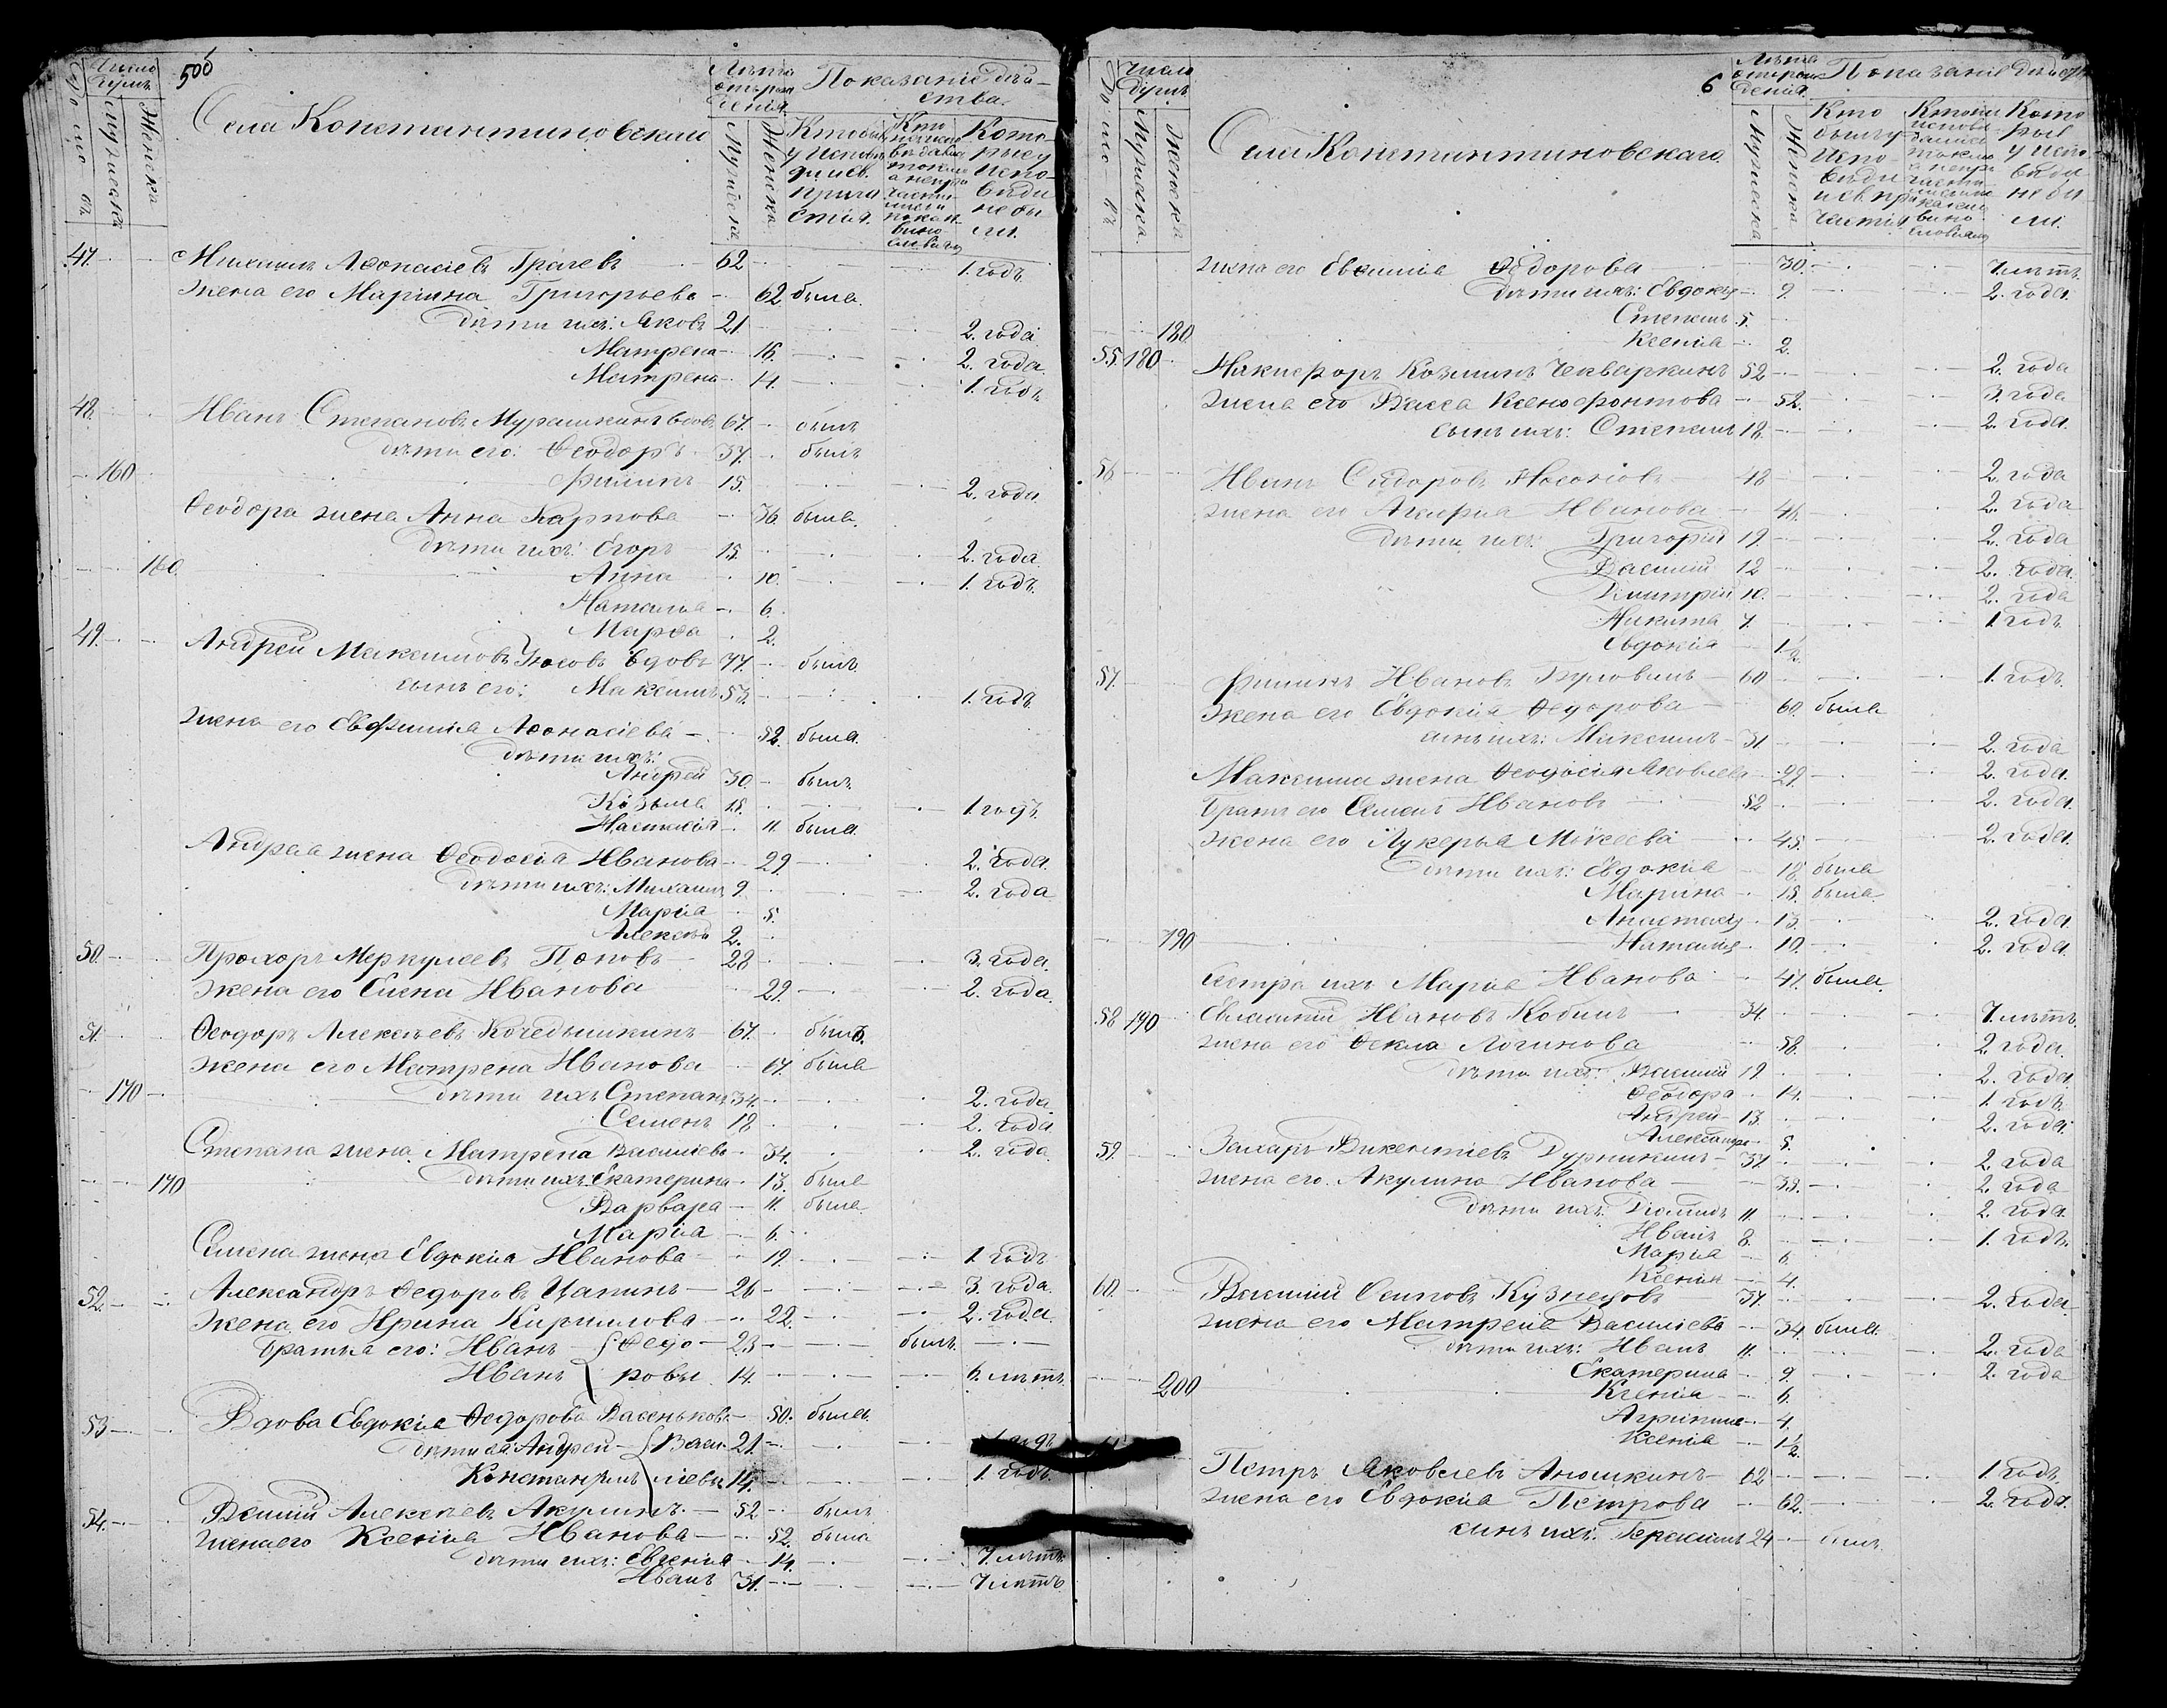 Число душъ
506
Лѣта отъ рожденія
Показаніе дѣйства.
Домовъ
Мужеска
Женска
Села Константиновскаго
Мужеска
Женска
Кто были у исповѣди и св. причастія.
Кто исповѣдались токмо а не причастились и по какимъ винословіямъ
Которые у исповѣди не были.
47. Михаилъ Аѳонасіевъ Грачевъ 62 1. годъ
Жена его Маріина Григорьева 62. была.
дѣти ихъ: Яковъ 21 2. года.
Матрена 16. 2. года.
Матрена 14. 1. годъ
48. Иванъ Степановъ Мурашкинъ вдовъ 67. былъ
дѣти его: Ѳеодоръ 37. былъ
160 Филипъ 15. 2. года
Ѳеодора жена Анна Карпова 36. была.
дѣти ихъ: Егоръ 15. 2. года.
160. Анна 10. 1. годъ.
Наталья 6.
Марѳа 2.
49. Андрей Максимовъ вдовъ 77. былъ
сынъ его: Максимъ 53. 1. годъ
жена его Евфимия Аѳонасіева 52. была.
дѣти ихъ:
Андрей 30. былъ
Козьма 18. 1 годъ.
Настасія 11. была.
Андрея жена Ѳеодосія Иванова 29. 2. года.
дѣти ихъ: Михаилъ 9. 2. года
Марія 5.
Алексѣй 2.
50. Прохоръ Меркулеевъ Поповъ 28 3. года.
Жена его Елена Иванова 29. 2. года.
51. Ѳеодоръ Алексѣевъ Кочедышкинъ 67. былъ.
Жена его Матрена Иванова 67. была
170 дѣти ихъ Степанъ 34. 2. года
Семенъ 18 2. года
Степана жена Матрена Василіева 34. 2. года.
170 дѣти ихъ: Екатерина 13. была
Варвара 11. была.
Марія 6.
Семена жена Евдокія Иванова 19. 1. годъ
52. Александръ Ѳедоровъ Цапинъ 26 3. года.
Жена его Ирина Кирилова 22. 2. года.
Братья его: Иванъ { Ѳедо 23 былъ.
Иванъ ровы 14. 6. лѣтъ.
53. Вдова Евдокія Ѳедорова Васенькова 50. была.
дѣти ея: Андрей { Васи 21. 1. годъ
Константинъ лієвы 14. 1. годъ.
54. Василій Алексѣевъ Акулинъ 52 былъ
жена его Ксенія Иванова 52. была
дѣти ихъ: Евгенія 14. 7. лѣтъ.
Иванъ 31. 7 лѣтъ.
Число душъ
6
Лѣта отъ рожденія.
Показаніе дѣйства
Домовъ
Мужеска.
Женска
Села Константиновскаго.
Мужеска
Женска
Кто были у исповѣди и св. причастія
Кто исповѣдались токмо а не причастились и по какимъ винословіямъ
Которые у исповѣди не были.
жена его Евѳимія Ѳедорова 30. 7. лѣтъ.
дѣти ихъ: Евдокія 9. 2. года.
Степанъ 5.
180 Ксенія 2.
55. 180 Никифоръ Козминъ Чекваркинъ 52 2. года
жена его Васса Ксенофонтова 52. 3. года
сынъ ихъ: Степанъ 18. 2. года.
56 Иванъ Сидоровъ 48 2. года
жена его Иванова 46. 2. года
дѣти ихъ: Григорій 19 2. года
Василій 12 2. года.
Дмитрій 10. 2. года
Никита 7. 1. годъ.
Евдокія 1½.
57. Филипъ Ивановъ 60 1. годъ.
Жена его Евдокія Ѳедорова 60. была
сынъ ихъ: Максимъ 31. 2. года
Максима жена Ѳеодосія Яковлева 29. 2. года.
Братъ его Семенъ Ивановъ 52 2. года.
Жена его Лукерья Мокеева 45. 2. года.
дѣти ихъ: Евдокія 18. была
Марина 15. была
Анастасія 13. 2. года.
190 Наталія 10. 2. года.
Сестра ихъ Марія Иванова 47. была.
58 190 Евлампій Ивановъ Кобинъ 34. 7. лѣтъ.
жена его Ѳекла Логинова 58. 2. года.
дѣти ихъ: Василій 19. 2. года.
Ѳеодора 14. 1. годъ.
Андрей 13. 2. года.
Александра 5.
59. Захаръ Викентіевъ 37. 2. года
жена его Акулина Иванова 39. 2. года
дѣти ихъ: 11. 2. года.
Иванъ 8. 1. годъ.
Марія 6.
Ксенія 4.
60. Василій Осиповъ Кузнецовъ 37. 2. года
жена его Матрена Василіева 34. была.
дѣти ихъ: Иванъ 11. 2. года
Екатерина 9. 2. года
200 Ксенія 6.
Агрипина 4.
Ксенія 1½.
Петръ Яковлевъ Аношкинъ 62 1. годъ.
жена его Евдокія Петрова 62. 2. года.
сынъ ихъ: Герасимъ 24 былъ